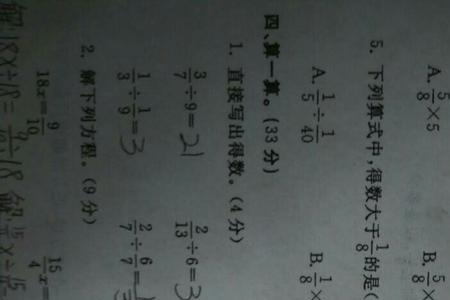 A. 5/8 × 5 B. 5/8 ×
5. 下列算式中,得数大于1/8的是(
A. 1/5 ÷ 1/40 B. 1/8 ×
四、算一算。(33分)
1. 直接写出得数。(4分)
3/7 ÷ 9 = 21 2/13 ÷ 6 = 3
1/3 ÷ 1/9 = 3 2/7 ÷ 6/7 =
2. 解下列方程。(9分)
18x = 9/10 15/4 x =
解 18x÷18 = 9/ ÷18 解 x÷15